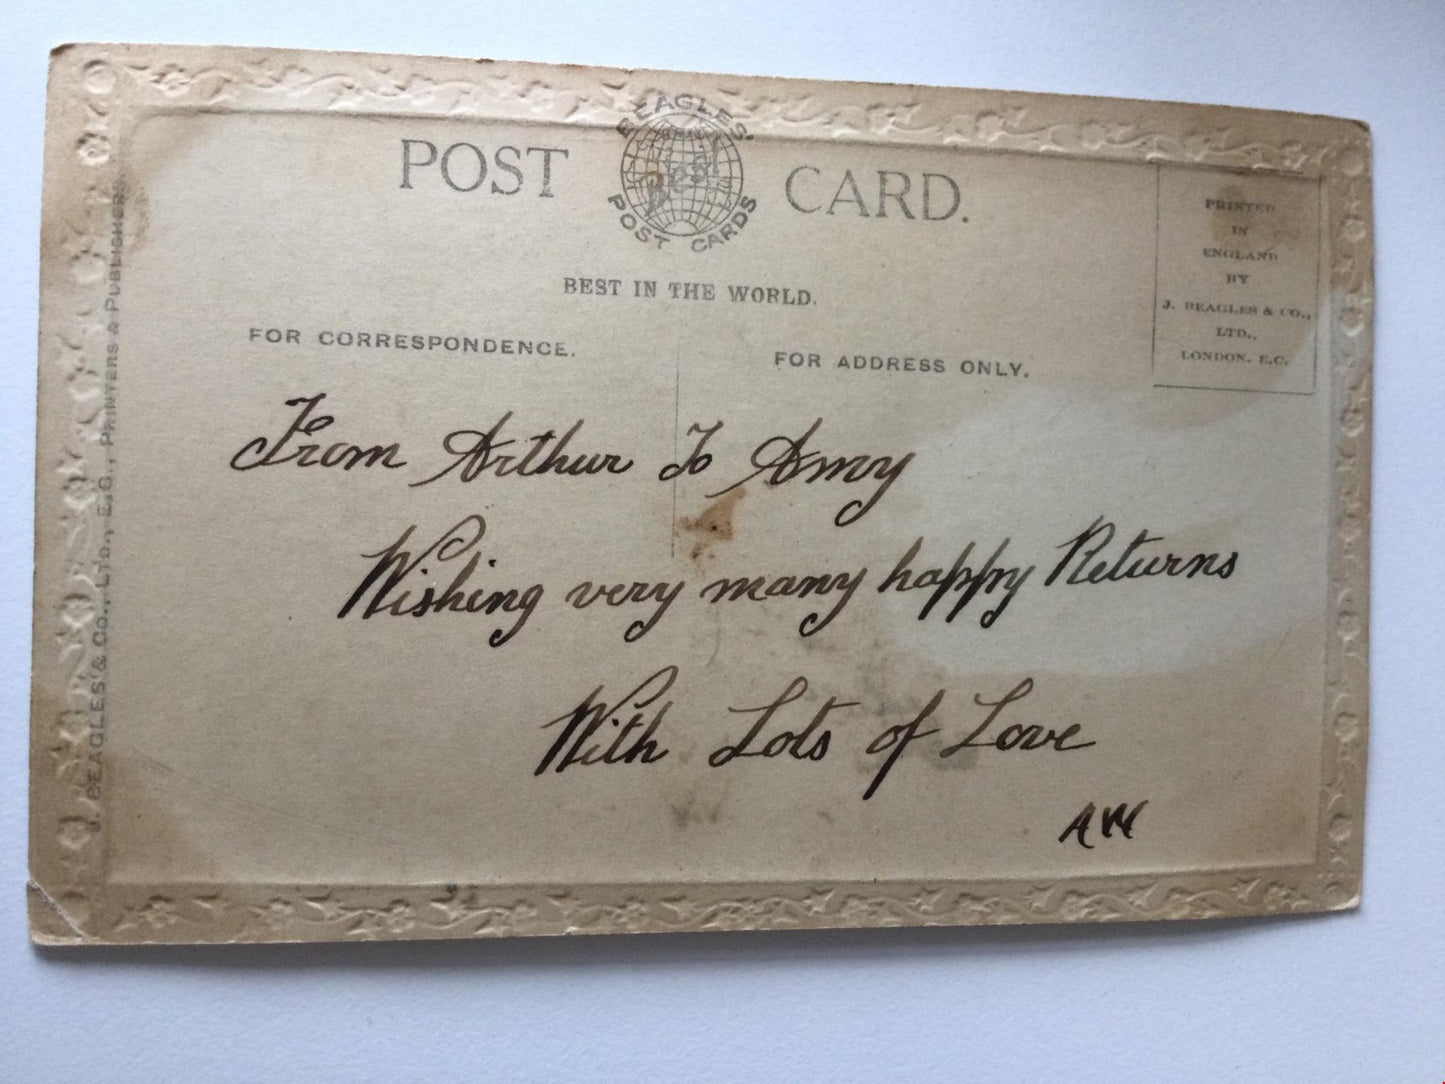 POST CARD.
BEAGLES'
Best
POST CARDS
BEST IN THE WORLD.
FOR CORRESPONDENCE.
FOR ADDRESS ONLY.
PRINTED
IN
ENGLAND
BY
J. BEAGLES & CO.,
LTD.,
LONDON. E.C.
J. BEAGLES & Co., LTD., E.C., PRINTERS & PUBLISHERS
From Arthur To Amy
Wishing very many happy Returns
With Lots of Love
AW